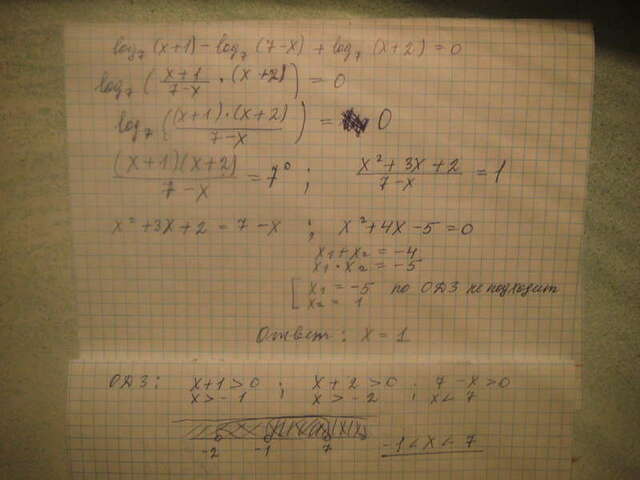 log₇(x+1) - log₇(7-x) + log₇(x+2) = 0
log₇((x+1)/(7-x) · (x+2)) = 0
log₇(((x+1)·(x+2))/(7-x)) = 0
((x+1)(x+2))/(7-x) = 7⁰ ; (x²+3x+2)/(7-x) = 1
x²+3x+2 = 7-x ; x²+4x-5=0
x₁+x₂ = -4
x₁·x₂ = -5
[ x₁ = -5 по ОДЗ не подходит
x₂ = 1
Ответ: x = 1
ОДЗ: x+1>0 ; x+2>0 ; 7-x>0
x>-1 x>-2 ; x<7
-2 -1 7 -1<x<7